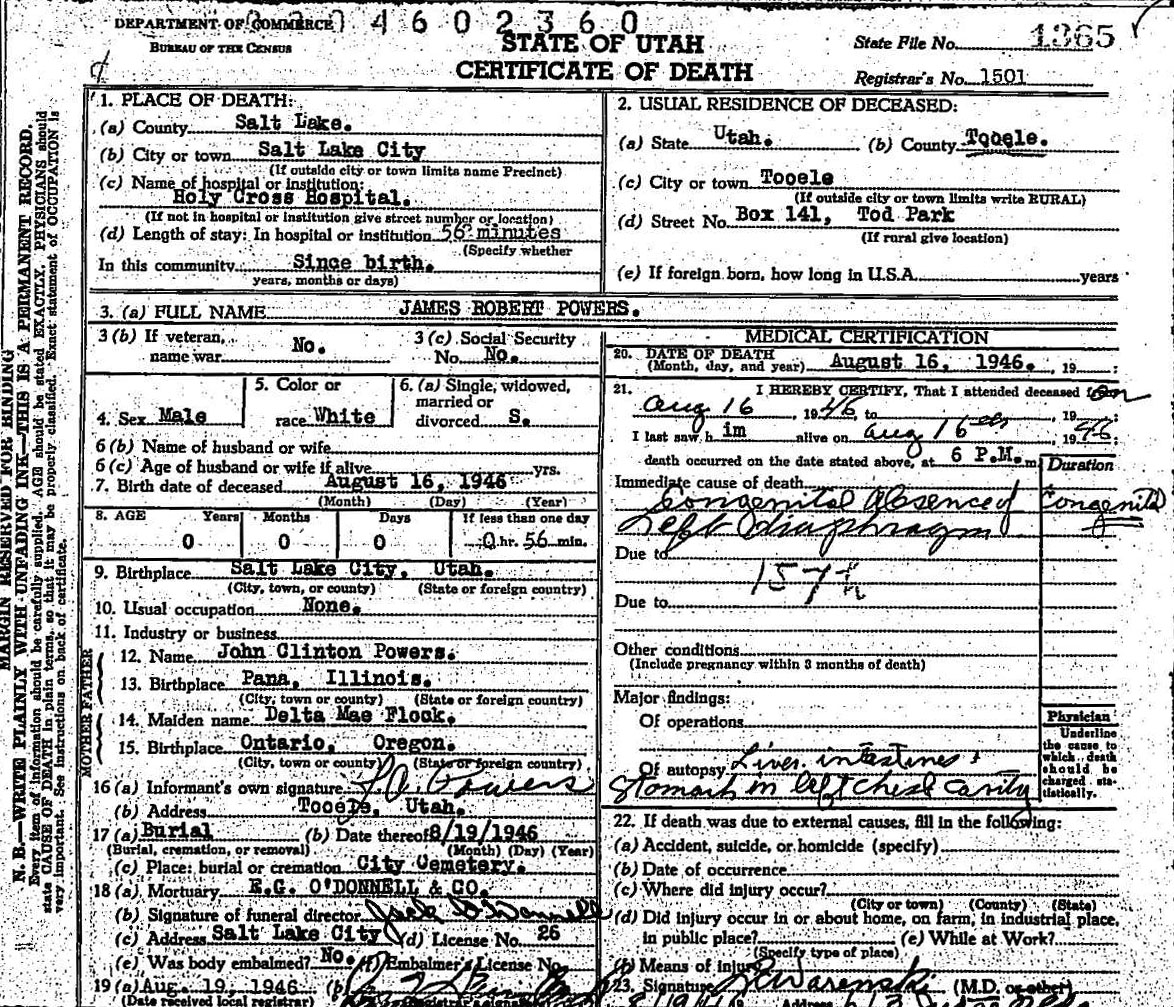 DEPARTMENT OF COMMERCE
0 4 6 0 2 3 6 0
BUREAU OF THE CENSUS
STATE OF UTAH
CERTIFICATE OF DEATH
State File No. 1365
Registrar's No. 1501
MARGIN RESERVED FOR BINDING
N. B.—WRITE PLAINLY WITH UNFADING INK—THIS IS A PERMANENT RECORD.
Every item of information should be carefully supplied. AGE should be stated EXACTLY. PHYSICIANS should
state CAUSE OF DEATH in plain terms, so that it may be properly classified. Exact statement of OCCUPATION is
very important. See instructions on back of certificate.
1. PLACE OF DEATH:
(a) County Salt Lake.
(b) City or town Salt Lake City
(If outside city or town limits name Precinct)
(c) Name of hospital or institution:
Holy Cross Hospital.
(If not in hospital or institution give street number or location)
(d) Length of stay: In hospital or institution 56 minutes
(Specify whether
In this community Since birth.
years, months or days)
2. USUAL RESIDENCE OF DECEASED:
(a) State Utah. (b) County Tooele.
(c) City or town Tooele
(If outside city or town limits write RURAL)
(d) Street No. Box 141, Tod Park
(If rural give location)
(e) If foreign born, how long in U.S.A. years
3. (a) FULL NAME JAMES ROBERT POWERS.
3 (b) If veteran, name war No.
3 (c) Social Security No. No.
4. Sex Male
5. Color or race White
6. (a) Single, widowed, married or divorced S.
6 (b) Name of husband or wife
6 (c) Age of husband or wife if alive yrs.
7. Birth date of deceased August 16, 1946
(Month) (Day) (Year)
8. AGE Years Months Days If less than one day
0 0 0 0 hr. 56 min.
9. Birthplace Salt Lake City, Utah.
(City, town, or county) (State or foreign country)
10. Usual occupation None.
11. Industry or business
FATHER
12. Name John Clinton Powers.
13. Birthplace Pana, Illinois.
(City, town or county) (State or foreign country)
MOTHER
14. Maiden name Delta Mae Flook.
15. Birthplace Ontario, Oregon.
(City, town or county) (State or foreign country)
16 (a) Informant's own signature Powers
(b) Address Tooele, Utah.
17 (a) Burial (b) Date thereof 8/19/1946
(Burial, cremation, or removal) (Month) (Day) (Year)
(c) Place: burial or cremation City Cemetery.
18 (a) Mortuary E.G. O'DONNELL & CO.
(b) Signature of funeral director Jack O'Donnell
(c) Address Salt Lake City (d) License No. 26
(e) Was body embalmed? No. (f) Embalmer's License No.
19 (a) Aug. 19, 1946 (b)
(Date received local registrar) Registrar's signature
MEDICAL CERTIFICATION
20. DATE OF DEATH
(Month, day, and year) August 16, 1946. , 19 :
21. I HEREBY CERTIFY, That I attended deceased from
Aug 16 , 1946 to , 19 ;
I last saw him alive on Aug 16th , 1946;
death occurred on the date stated above, at 6 P.M. m
Duration
Immediate cause of death
Congenital Absence of Congenital
Left diaphragm
Due to
157
Due to
Other conditions
(Include pregnancy within 3 months of death)
Major findings:
Of operations
Of autopsy Liver. intestines &
Stomach in left chest cavity
Physician
Underline the cause to which death should be charged statistically.
22. If death was due to external causes, fill in the following:
(a) Accident, suicide, or homicide (specify)
(b) Date of occurrence
(c) Where did injury occur?
(City or town) (County) (State)
(d) Did injury occur in or about home, on farm, in industrial place,
in public place? (e) While at Work?
(Specify type of place)
(f) Means of injury
23. Signature (M.D. or other)
Address